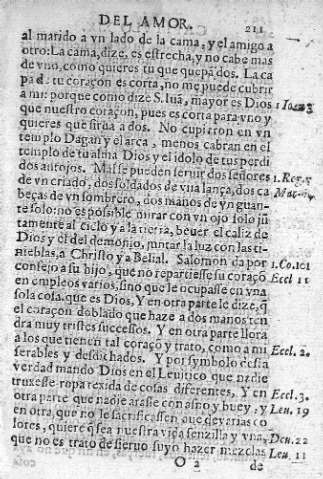 DEL AMOR. 211
al marido a vn lado de la cama, y el amigo a
otro: La cama, dize, es estrecha, y no cabe mas
de vno, como quieres tu que quepã dos. La ca
pa d. tu coraçon es corta, no me puede cubrir
a mi: porque como dize S. Iuã, mayor es Dios 1. Ioan 3
que nuestro coraçon, pues es corta para vno y
quieres que sirua a dos. No cupieron en vn
templo Dagan y el arca, menos cabran en el
templo de tu alma Dios y el idolo de tus perdi
dos antojos. Mal se pueden seruir dos señores 1. Reg. 5
de vn criado, dos soldados de vna lança, dos ca
beças de vn sombrero, dos manos de vn guan-
te solo: no es posible mirar con vn ojo solo jũ
tamente al cielo y a la tierra, beuer el caliz de
Dios y el del demonio, juntar la luz con las ti-
nieblas, a Christo y a Belial. Salomon da por 1. Co. 10
consejo a su hijo, que no repartiesse su coraçõ Eccl 11
en empleos varios, sino que le ocupasse en vna
sola cosa, que es Dios, Y en otra parte le dize, q̃
el coraçon doblado que haze a dos manos ten
dra muy tristes successos. Y en otra parte llora
a los que tienen tal coraçõ y trato, como a mi Eccl. 2.
serables y desdichados. Y por symbolo desta
verdad mando Dios en el Leuitico que nadie
truxesse ropa texida de cosas diferentes, Y en Eccl. 3.
otra parte que nadie arasse con asno y buey, y Leu. 19
en otra, que no le sacrificassen aue de varias co
lores, quiere q̃ sea nuestra vida senzilla y vna, Deu. 22
que no es trato de sieruo suyo hazer mezclas Leu. 11
O 2 de